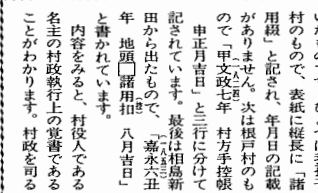 村のもので、表紙に縦長に「諸
用綴」と記され、年月日の記載
がありません。次は根戸村のも
ので「甲文政七年 村方手控帳
申正月吉日」と三行に分けて
記されています。最後は相島新
田から出たもので、「嘉永六丑
年 地頭□諸用扣 八月吉日」
と書かれています。
内容をみると、村役人である
名主の村政執行上の覚書である
ことがわかります。村政を司る